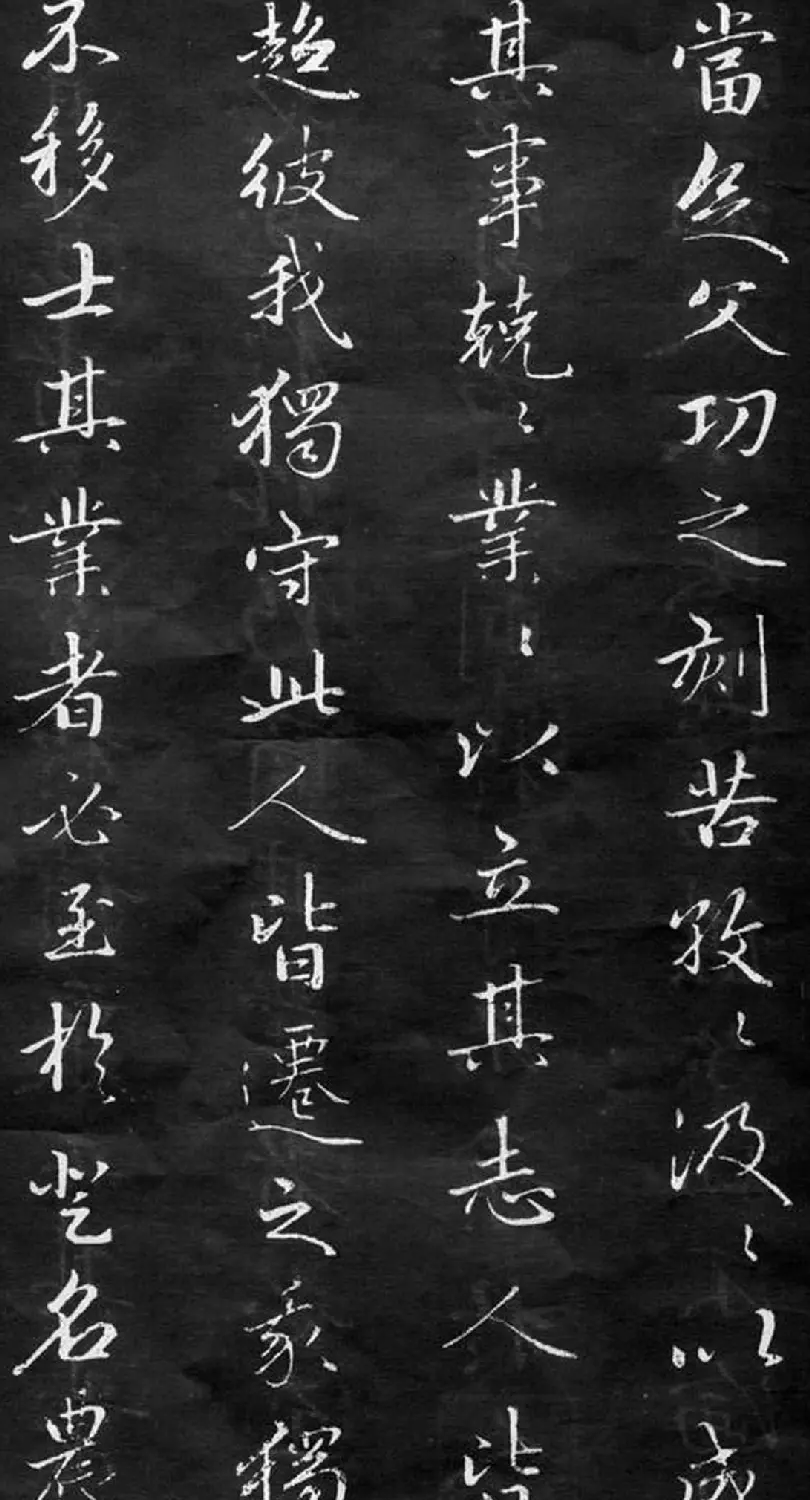 當父功之刻苦孜〻汲〻以成
其事兢〻業〻以立其志人皆
趨彼我獨守此人皆遷之我獨
不移士其業者必至於登名農